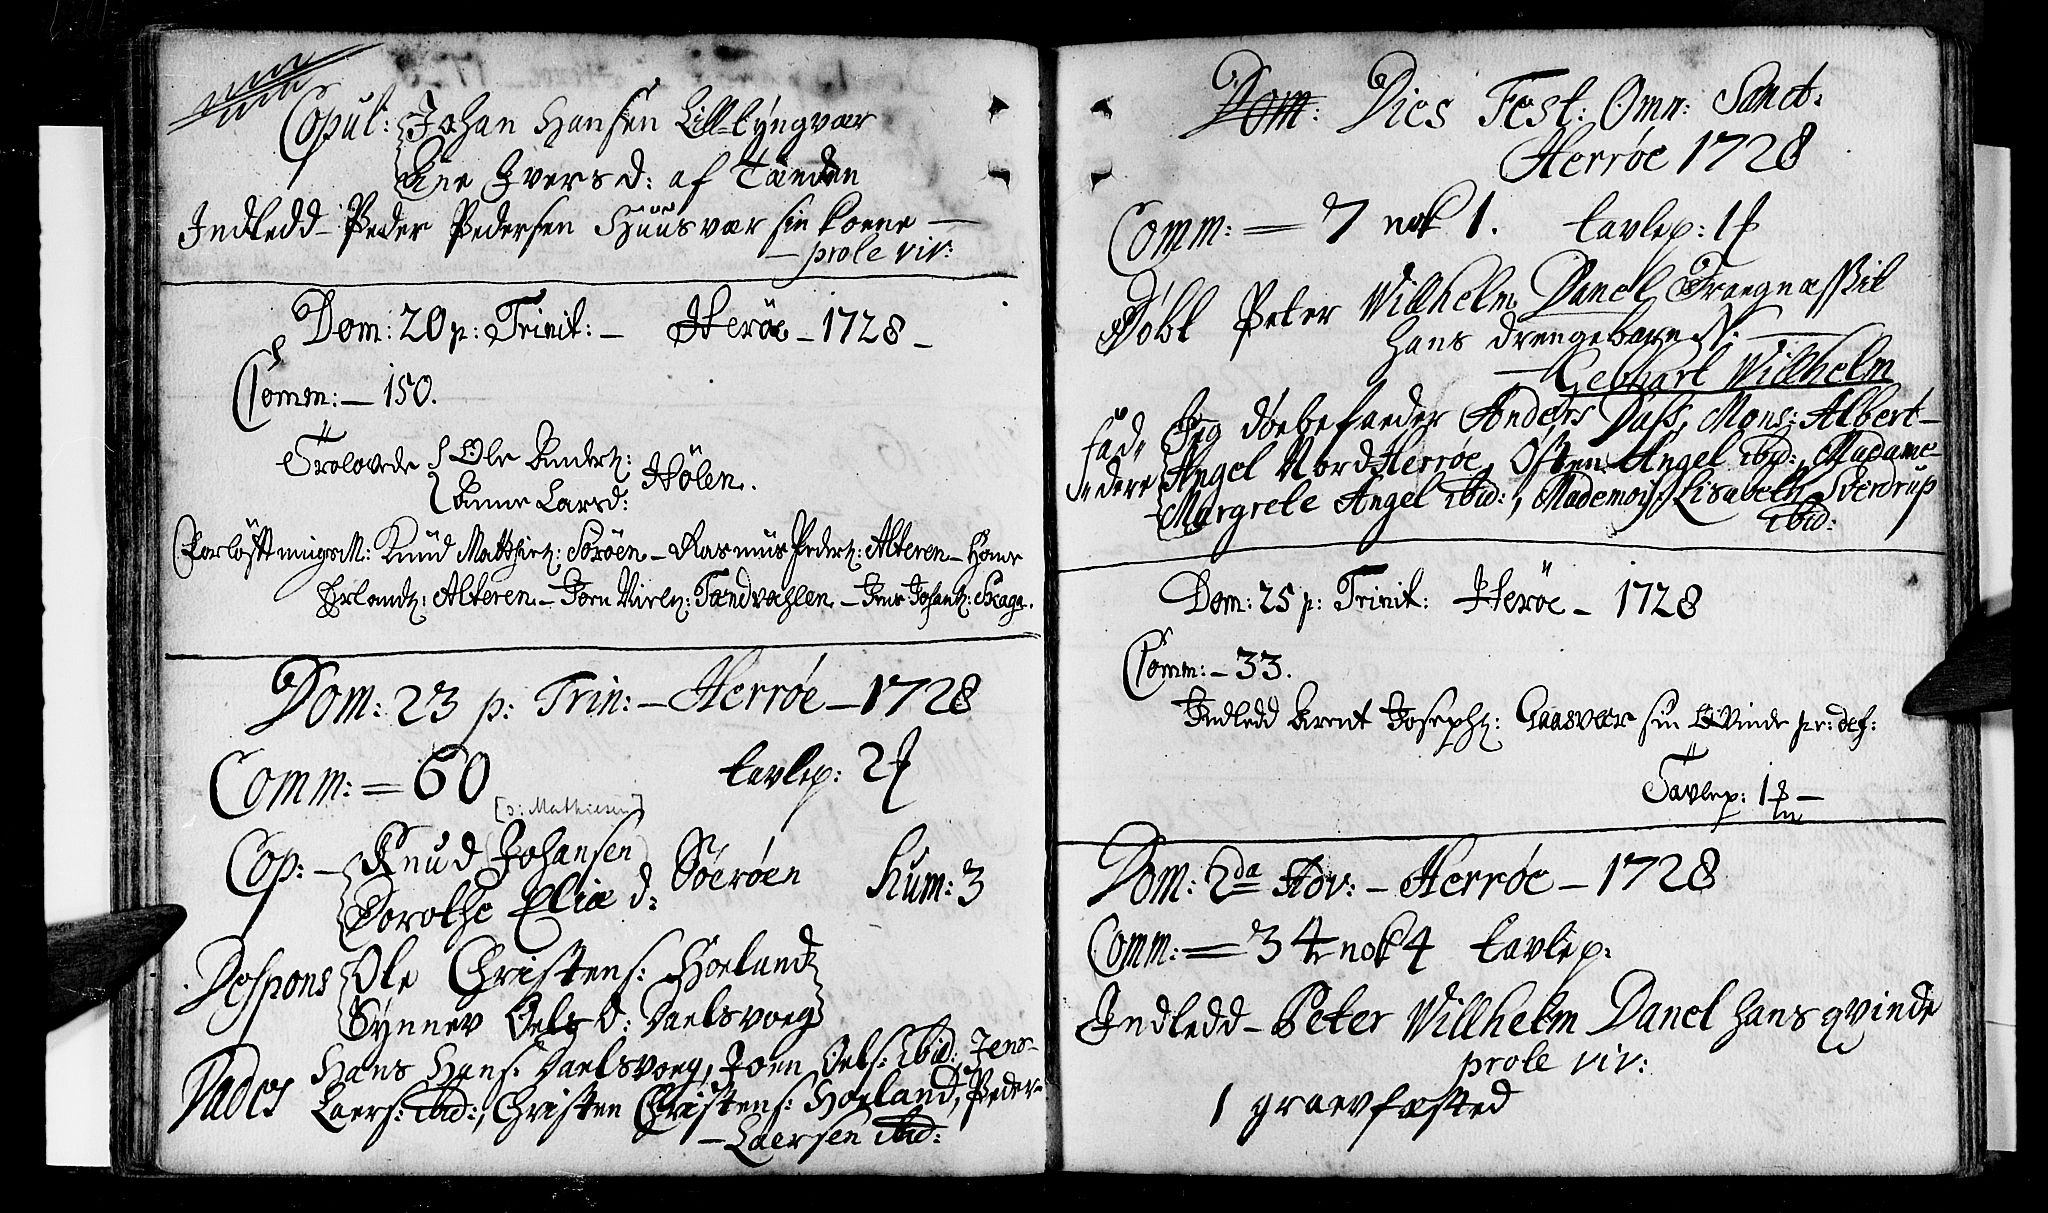 Copul: Johan Hansen Lill-Tyngvær
Ane Ivers d: af Tænden
Indledd - Peder Pedersen Huusvær sin Koene -
- prole viv:
Dom: 20 p: Trinit: - Herøe - 1728 -
Comm: - 150.
Trolovede Ole Anderß:
Anne Larsd: Hölen.
Forløftningsm: Knud Mathiæß: Sörøen - Rasmus Pederß: Alteren - Hans
Erlandß: Alteren - Jørn Nielß: Tandvahlen - Jens Johanß: Skaga.
Dom: 23 p: Trin: - Herrøe - 1728
Comm: = 60 tavlep: 2
[ɔ: Mathiesen]
Cop: - Knud Johansen
Dorothe Eliæ d: Søerøen hum: 3
Despons Ole Christens: Hoeland
Synnev Oels D: Daelsvoeg
Vades Hans Hans: Daelsvoeg, Joen Oels: ibid: Jens
Laers: ibid:, Christen Christens: Hoeland, Peder
- Laersen ibid:
Dom: Dies Fest: Omn: Sanct:
Herrøe 1728
Comm: = 7 nok 1. tavlep: 1
Døbt Peter Willhelm Danel Trægnæskil
hans drengebarn N: -
- Gebhart Willhelm
fad- Jeg døbefaeder Anders Dass, Mons: Albert-
dere Angel Nord Herrøe, Østen Angel ibid:, Madame
Margrete Angel ibid:, Mademois: Lisabeth Sverdrup
ibid:
Dom: 25 p: Trinit: Herøe - 1728
Comm: - 33.
Indledd Arent Josephß: Gaasvær sin Qvinde pr: def:
Tavlep: 1 -
Dom: 2da Adv: - Herrøe - 1728
Comm: = 34 nok 4 tavlep:
Indledd - Peter Willhelm Danel hans qvinde
prole viv:
1 graevfæsted